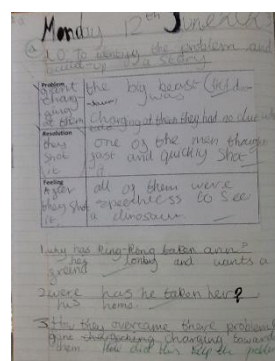 Monday 12th June
L.O To identify the problem and
build-up in a story
Problem
giant
charg
ging
at them
the big beast
was
charging at them they had no clue
Resolution
they
shot
it
one of the men thought
fast and quickly shot
it
Feeling
After
they shot
it.
all of them were
speechless to see
a dinosaur.
1. why has King-Kong taken ann?
hes lonley and wants a
greend
2. were has he taken her?
his home.
3. How they overcame there problem
charging toward
them How did this help the problem